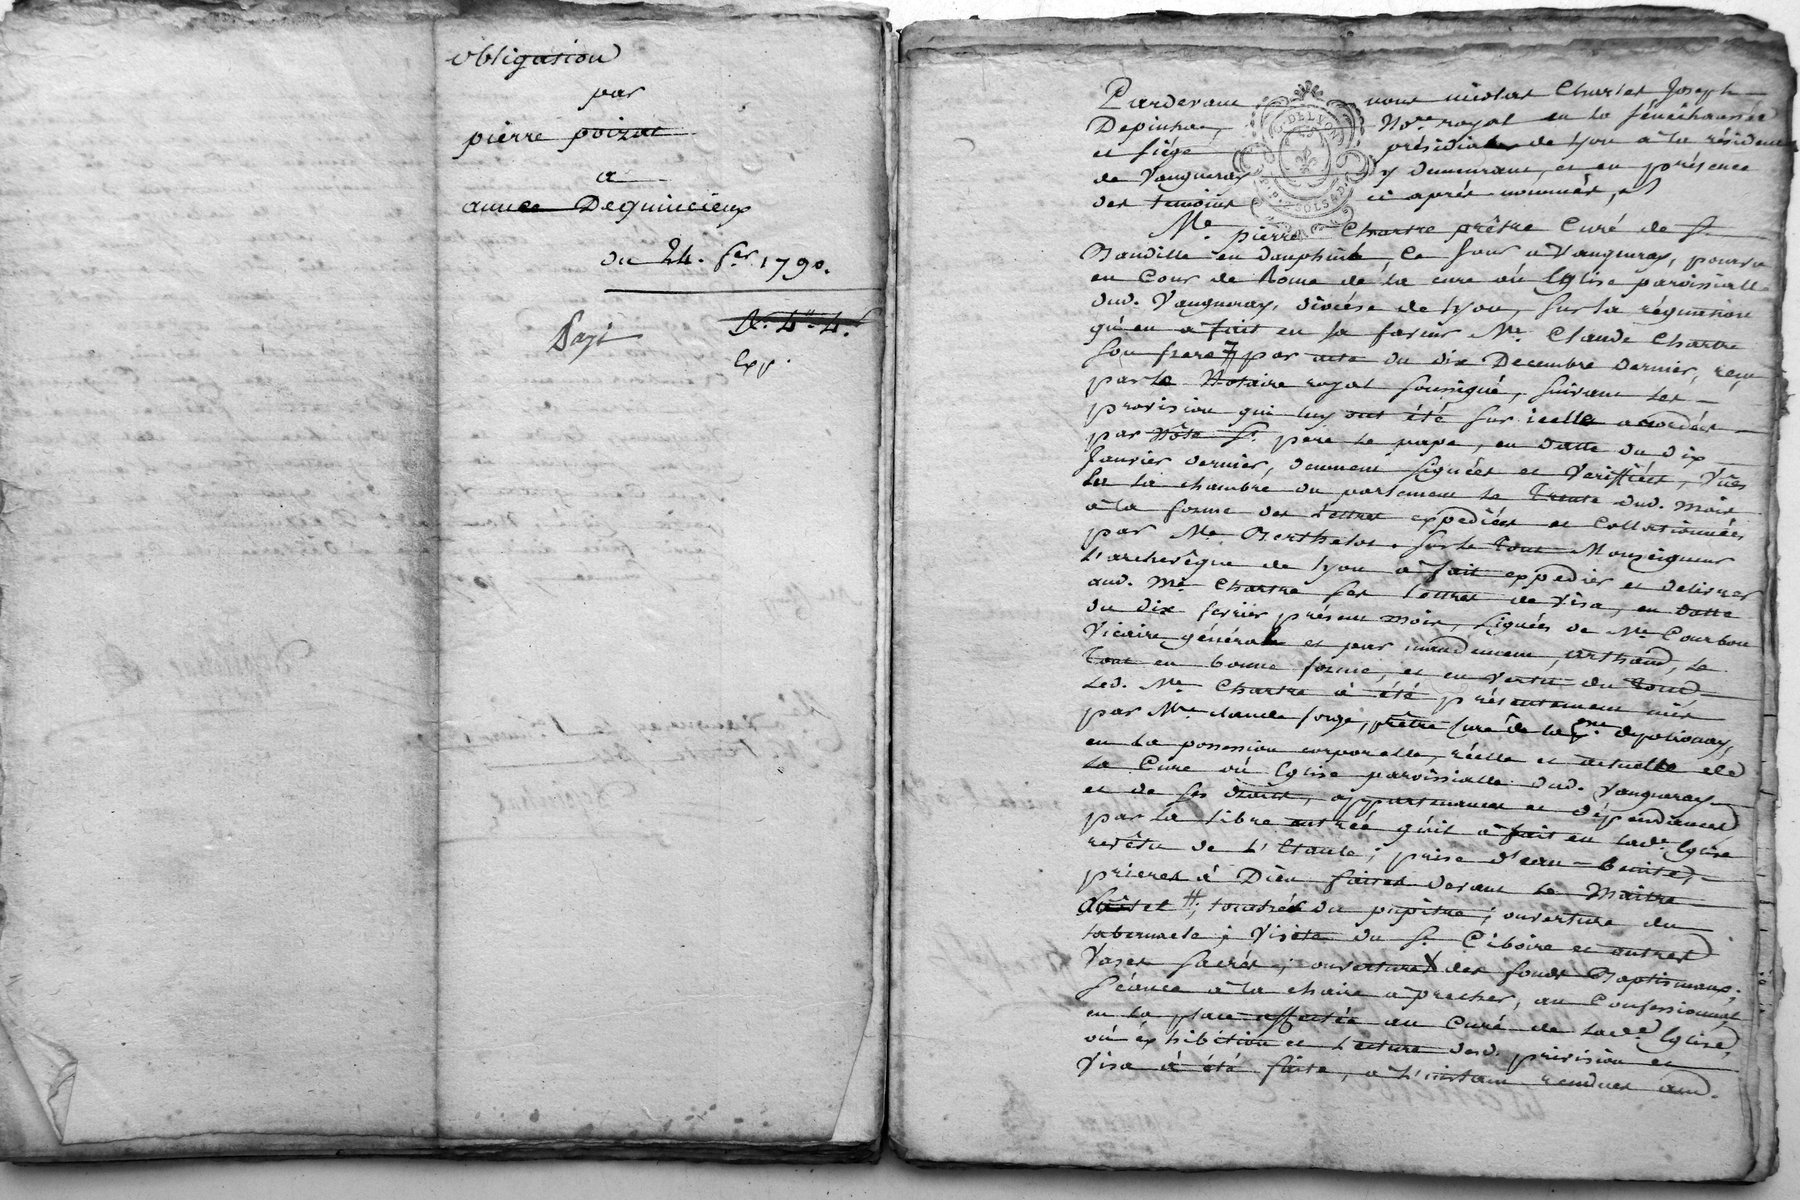 obligation
par
pierre poizat
a
annee Dequincieux
du 24. fer. 1790.
Payé
R. 4tt. 4s.
Exp.
Pardevant nous nicolas Charles Joseph
Depinhac, No.re royal en la sénéchaussée
et siége présidial de Lyon à la résidence
de Vaugneray y demeurant, et en présence
des temoins ci après nommés,
G. DE LYON
2 SOLS 4 D.
Me. pierre Chartre prêtre Curé de St
Baudille en dauphiné, Ce jour a Vaugneray, pourvu
en Cour de Rome de la cure où Eglise paroissialle
dud. Vaugneray, diocése de Lyon, sur la résignation
qu'en a fait en sa faveur Me. Claude Chartre
son frere par acte du dix Decembre dernier, reçu
par le Notaire royal soussigné, suivant les
provision qui luy ont été sur icelle accordées
par Notre St. pere le pape, en datte du dix
Janvier dernier, deument signées et verifficés, Vües
En la chambre du parlement le Trente dud. mois
à la forme des Lettres expediées et Collationnées
par Me Berthelot. sur le Tout Monseigneur
L'archevêque de Lyon a fait expedier et delivrer
aud. Me Chartre ses Lettres de Visa, en datte
du dix fevrier présent mois, signées de Me Courbon
Vicaire général et par mandement, arthaud, le
Tout en bonne forme, et en vertu du Toud
Led. Me Chartre à été présentement mis
par Mre claude forge, prêtre Curé de la pse. dyollonay,
en la possession corporelle, réelle et actuelle de
la Cure où Eglise paroissialle dud. Vaugneray
et de ses droits, appartenances et dépendances
par la libre entrée qu'il à fait en lade. Eglise
revêtu de L'Etaule; prise d'eau-benite,
prieres à Dieu faites devant le Maitre
Autel #; touchés du pupitre; ouverture du
tabernacle; Visite du St. Ciboire et autres
Vases sacrés; ouverture X des fonds Baptismaux;
séance à la chaire à precher, au Confessionnal
en la place affectée au Curé de lade Eglise,
où éxhibition et Lecture desd. privision et
Visa à été faite, a L'instant rendues aud.